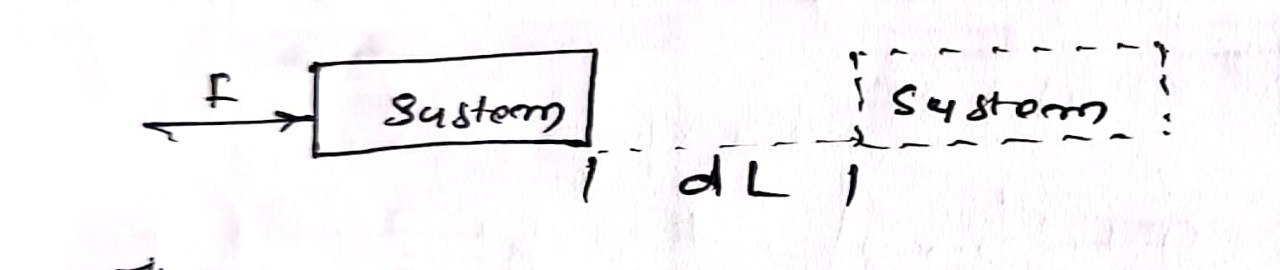 F
System
System
dL